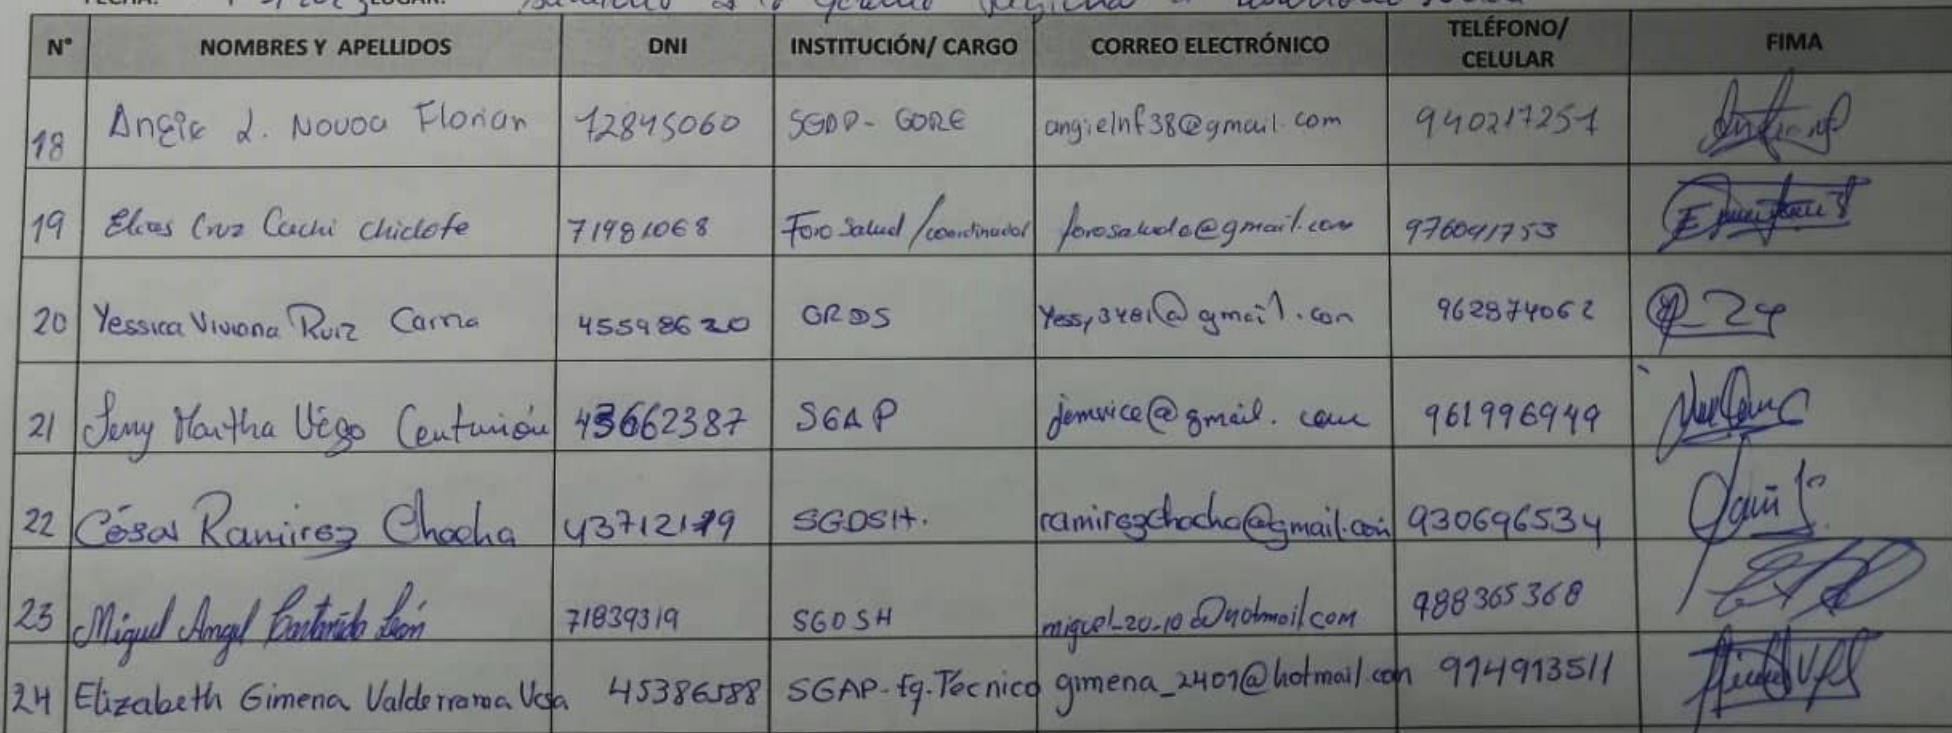 FECHA: LUGAR:
N° NOMBRES Y APELLIDOS DNI INSTITUCIÓN/ CARGO CORREO ELECTRÓNICO TELÉFONO/ CELULAR FIMA
18 Angie L. Novoa Florian 72845060 SGDP- GORE angielnf38@gmail.com 940217251
19 Elias Cruz Cachi chiclote 71981068 Foro Salud /coordinador 976041753
20 Yessica Viviana Ruiz Carna 45598620 GRDS Yessy3481@gmail.con 962874062
21 Jeny Martha Vego Centurión 43662387 SGAP jemvice@gmail.com 961996949
22 César Ramirez Chocha 43712179 SGDSH. ramirezchocha@gmail.com 930696534
23 Miguel Angel León 71839319 SGDSH miguel_20-10@hotmail.com 988365368
24 Elizabeth Gimena Valderrama 45386588 SGAP-Eq.Técnico gimena_2401@hotmail.com 914913511